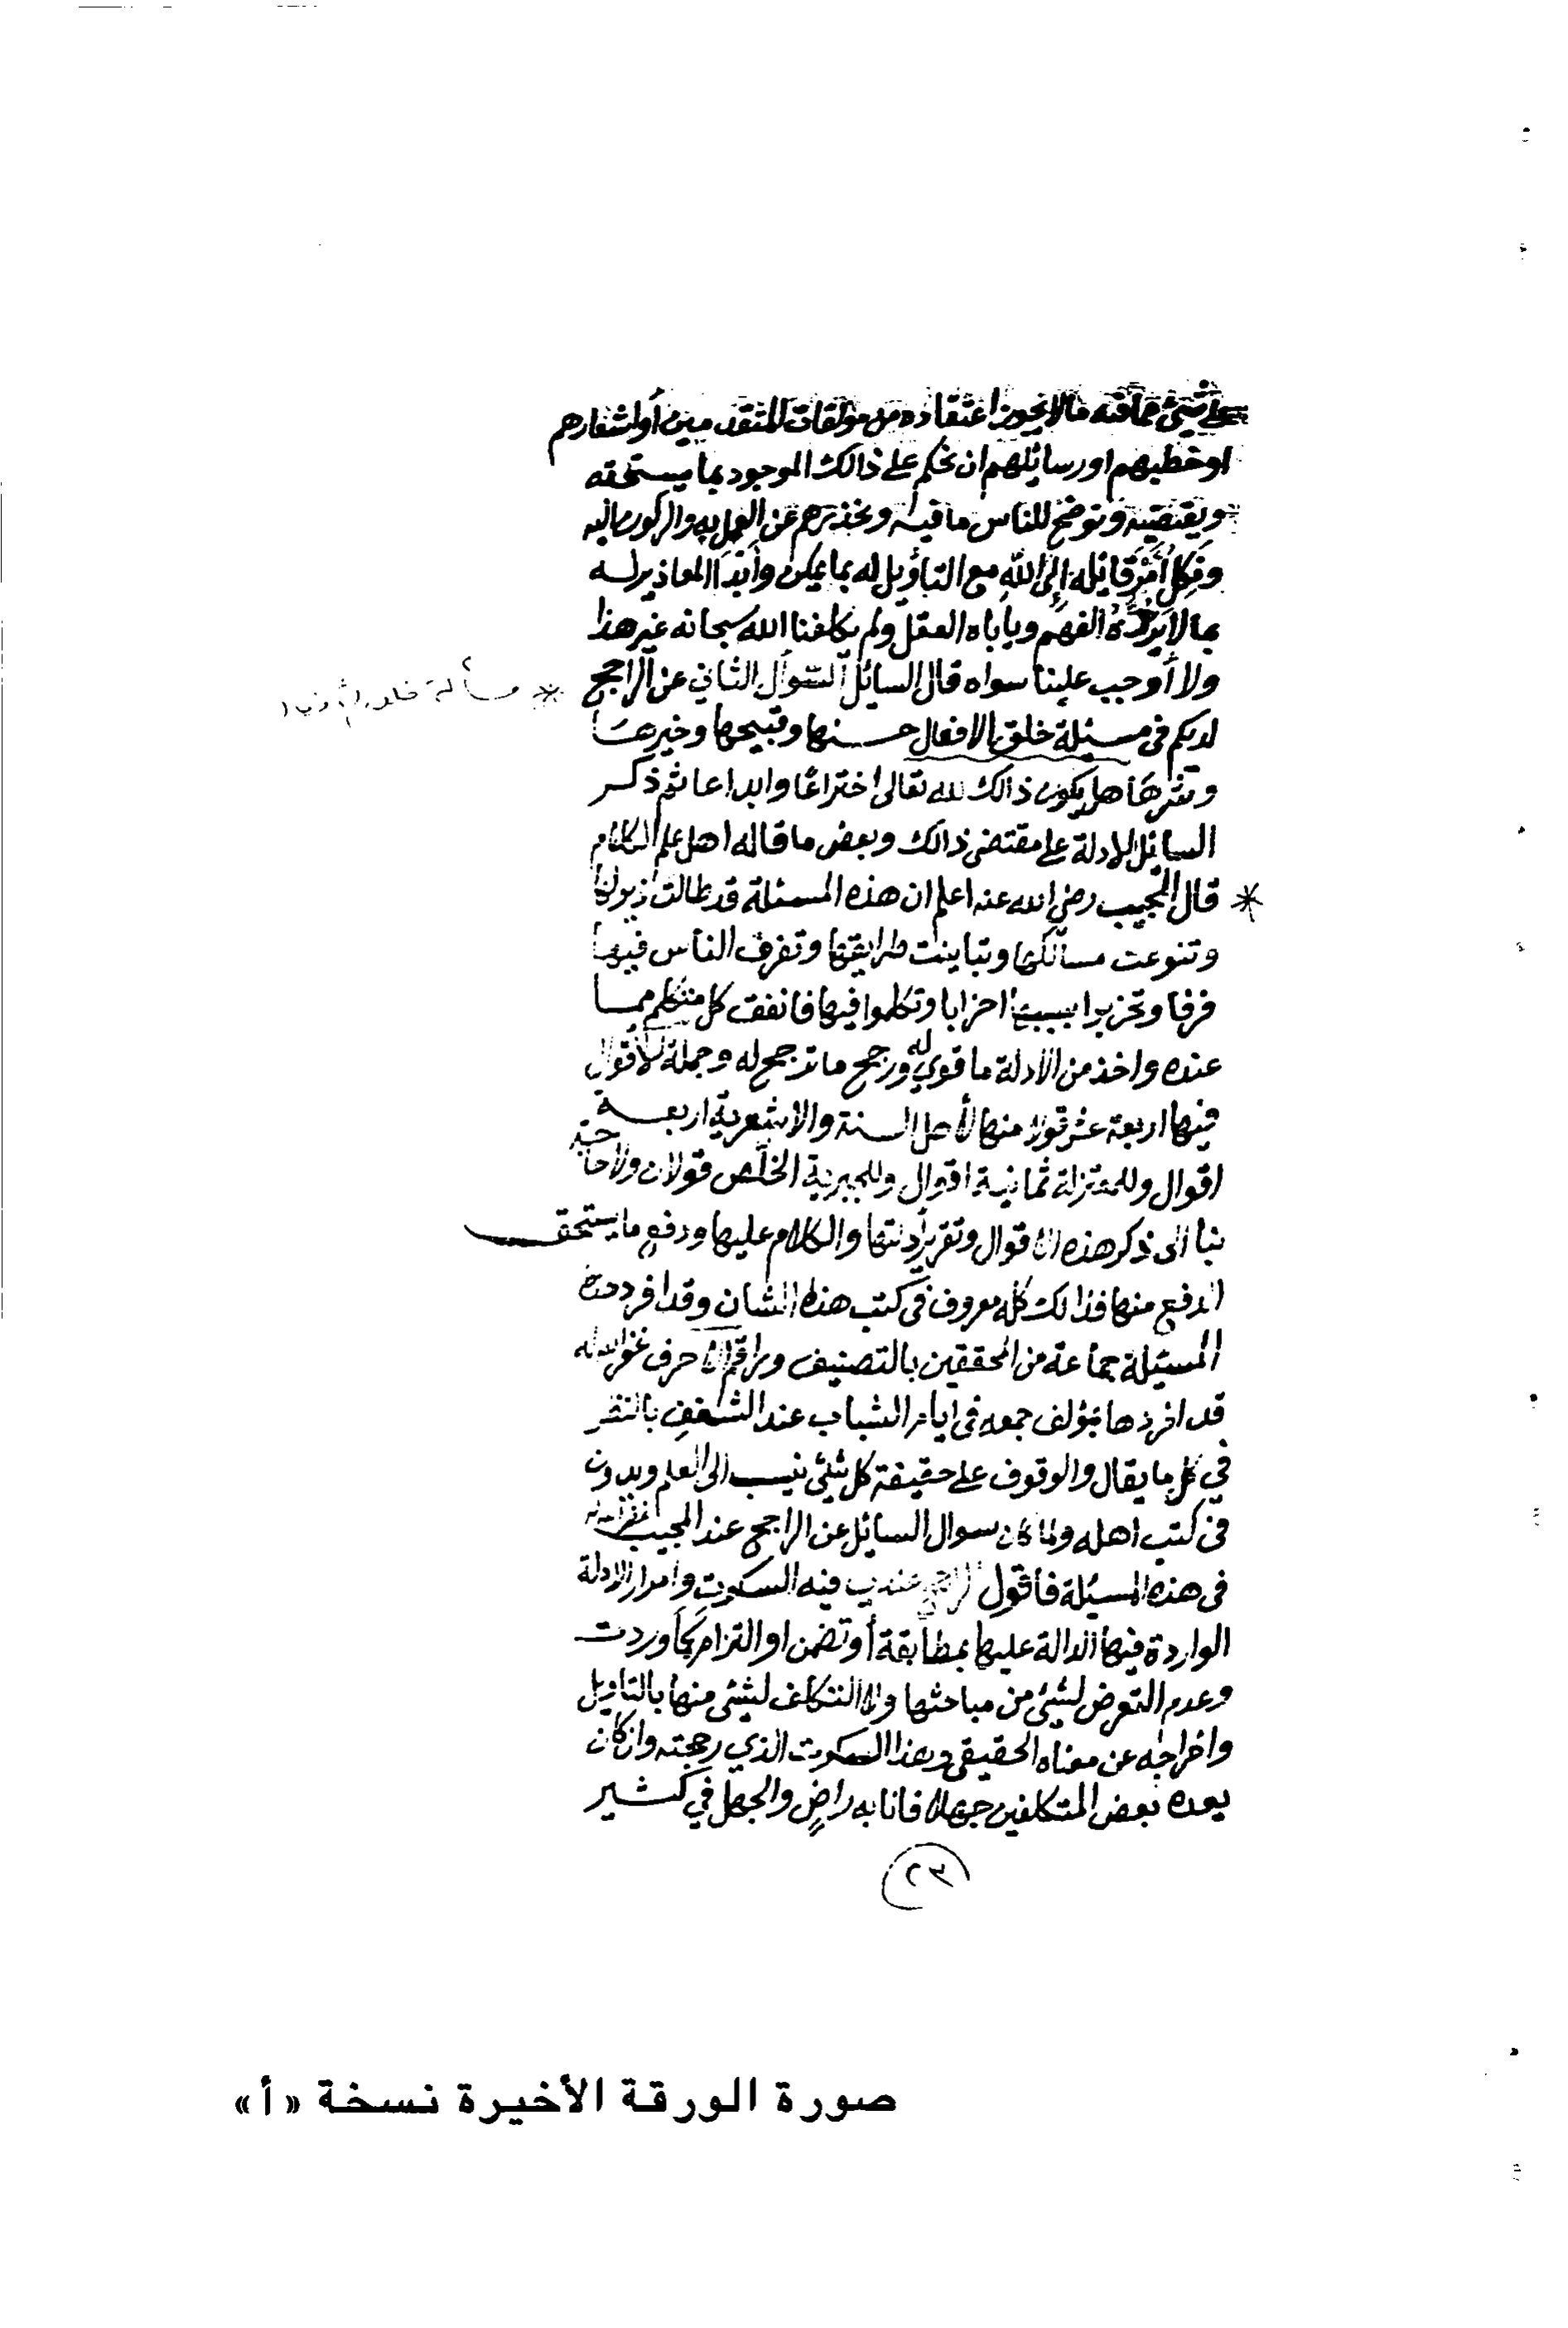 على شيئ مما فيه ما لا يجوز اعتقاده من مؤلفات المتقدمين أو اشعارهم
او خطبهم او رسائلهم ان نحكم على ذالك الموجود بما يستحقه
ويقتضيه ونوضح للناس ما فيه ونحذرهم عن العمل به والركون اليه
ونكل أمر قائله إلى الله مع التأويل له بما يمكن وأبدا المعاذير له
بما لا يرده الفهم ويأباه العقل ولم يكلفنا الله سبحانه غير هذا
ولا أوجب علينا سواه قال السائل السوال الثاني عن الراجح
* مسألة خلق
لديكم فى مسئلة خلق الافعال حسنها وقبيحها وخيرها
وشرها هل يكون ذالك لله تعالى اختراعا وابداعا ثم ذكر
السائل الادلة على مقتضى ذالك وبعض ما قاله اهل علم الكلام
* قال المجيب رضي الله عنه اعلم ان هذه المسئلة قد طالت ذيولها
وتنوعت مسالكها وتباينت طرايقها وتفرق الناس فيها
فرقا وتحزبوا بسببها احزابا وتكلموا فيها فانفق كل متكلم مما
عنده واخذ من الادلة ما قوي له ورجح ما ترجح له وجملة الأقوال
فيها اربعة عشر قولا منها لأهل السنة والاشعرية اربعة
اقوال وللمعتزلة ثمانية اقوال وللجبرية الخلص قولان ولا حاجة
بنا الى ذكر هذه الاقوال وتقرير أدلتها والكلام عليها ودفع ما يستحق
الدفع منها فذالك كله معروف فى كتب هذا الشان وقد افرد هذه
المسئلة جماعة من المحققين بالتصنيف وراقم الاحرف غفر الله له
قد افردها بمؤلف جمعه فى ايام الشباب عند الشغف بالنظر
في كل ما يقال والوقوف على حقيقة كل شيئ ينسب الى العلم ويدون
فى كتب اهله ولما كان سوال السائل عن الراجح عند المجيب غفر الله له
فى هذه المسئلة فاقول الراجح عندي فيه السكوت وامرار الادلة
الواردة فيها الدالة عليها بمطابقة أو تضمن او التزام كما وردت
وعدم التعرض لشيئ من مباحثها ولا التكلف لشيئ منها بالتاويل
واخراجه عن معناه الحقيقى وهذا السكوت الذي رجحته وان كان
يعده بعض المتكلفين جهلا فانا به راض والجهل في كثير
٢٣
صورة الورقة الأخيرة نسخة «أ»